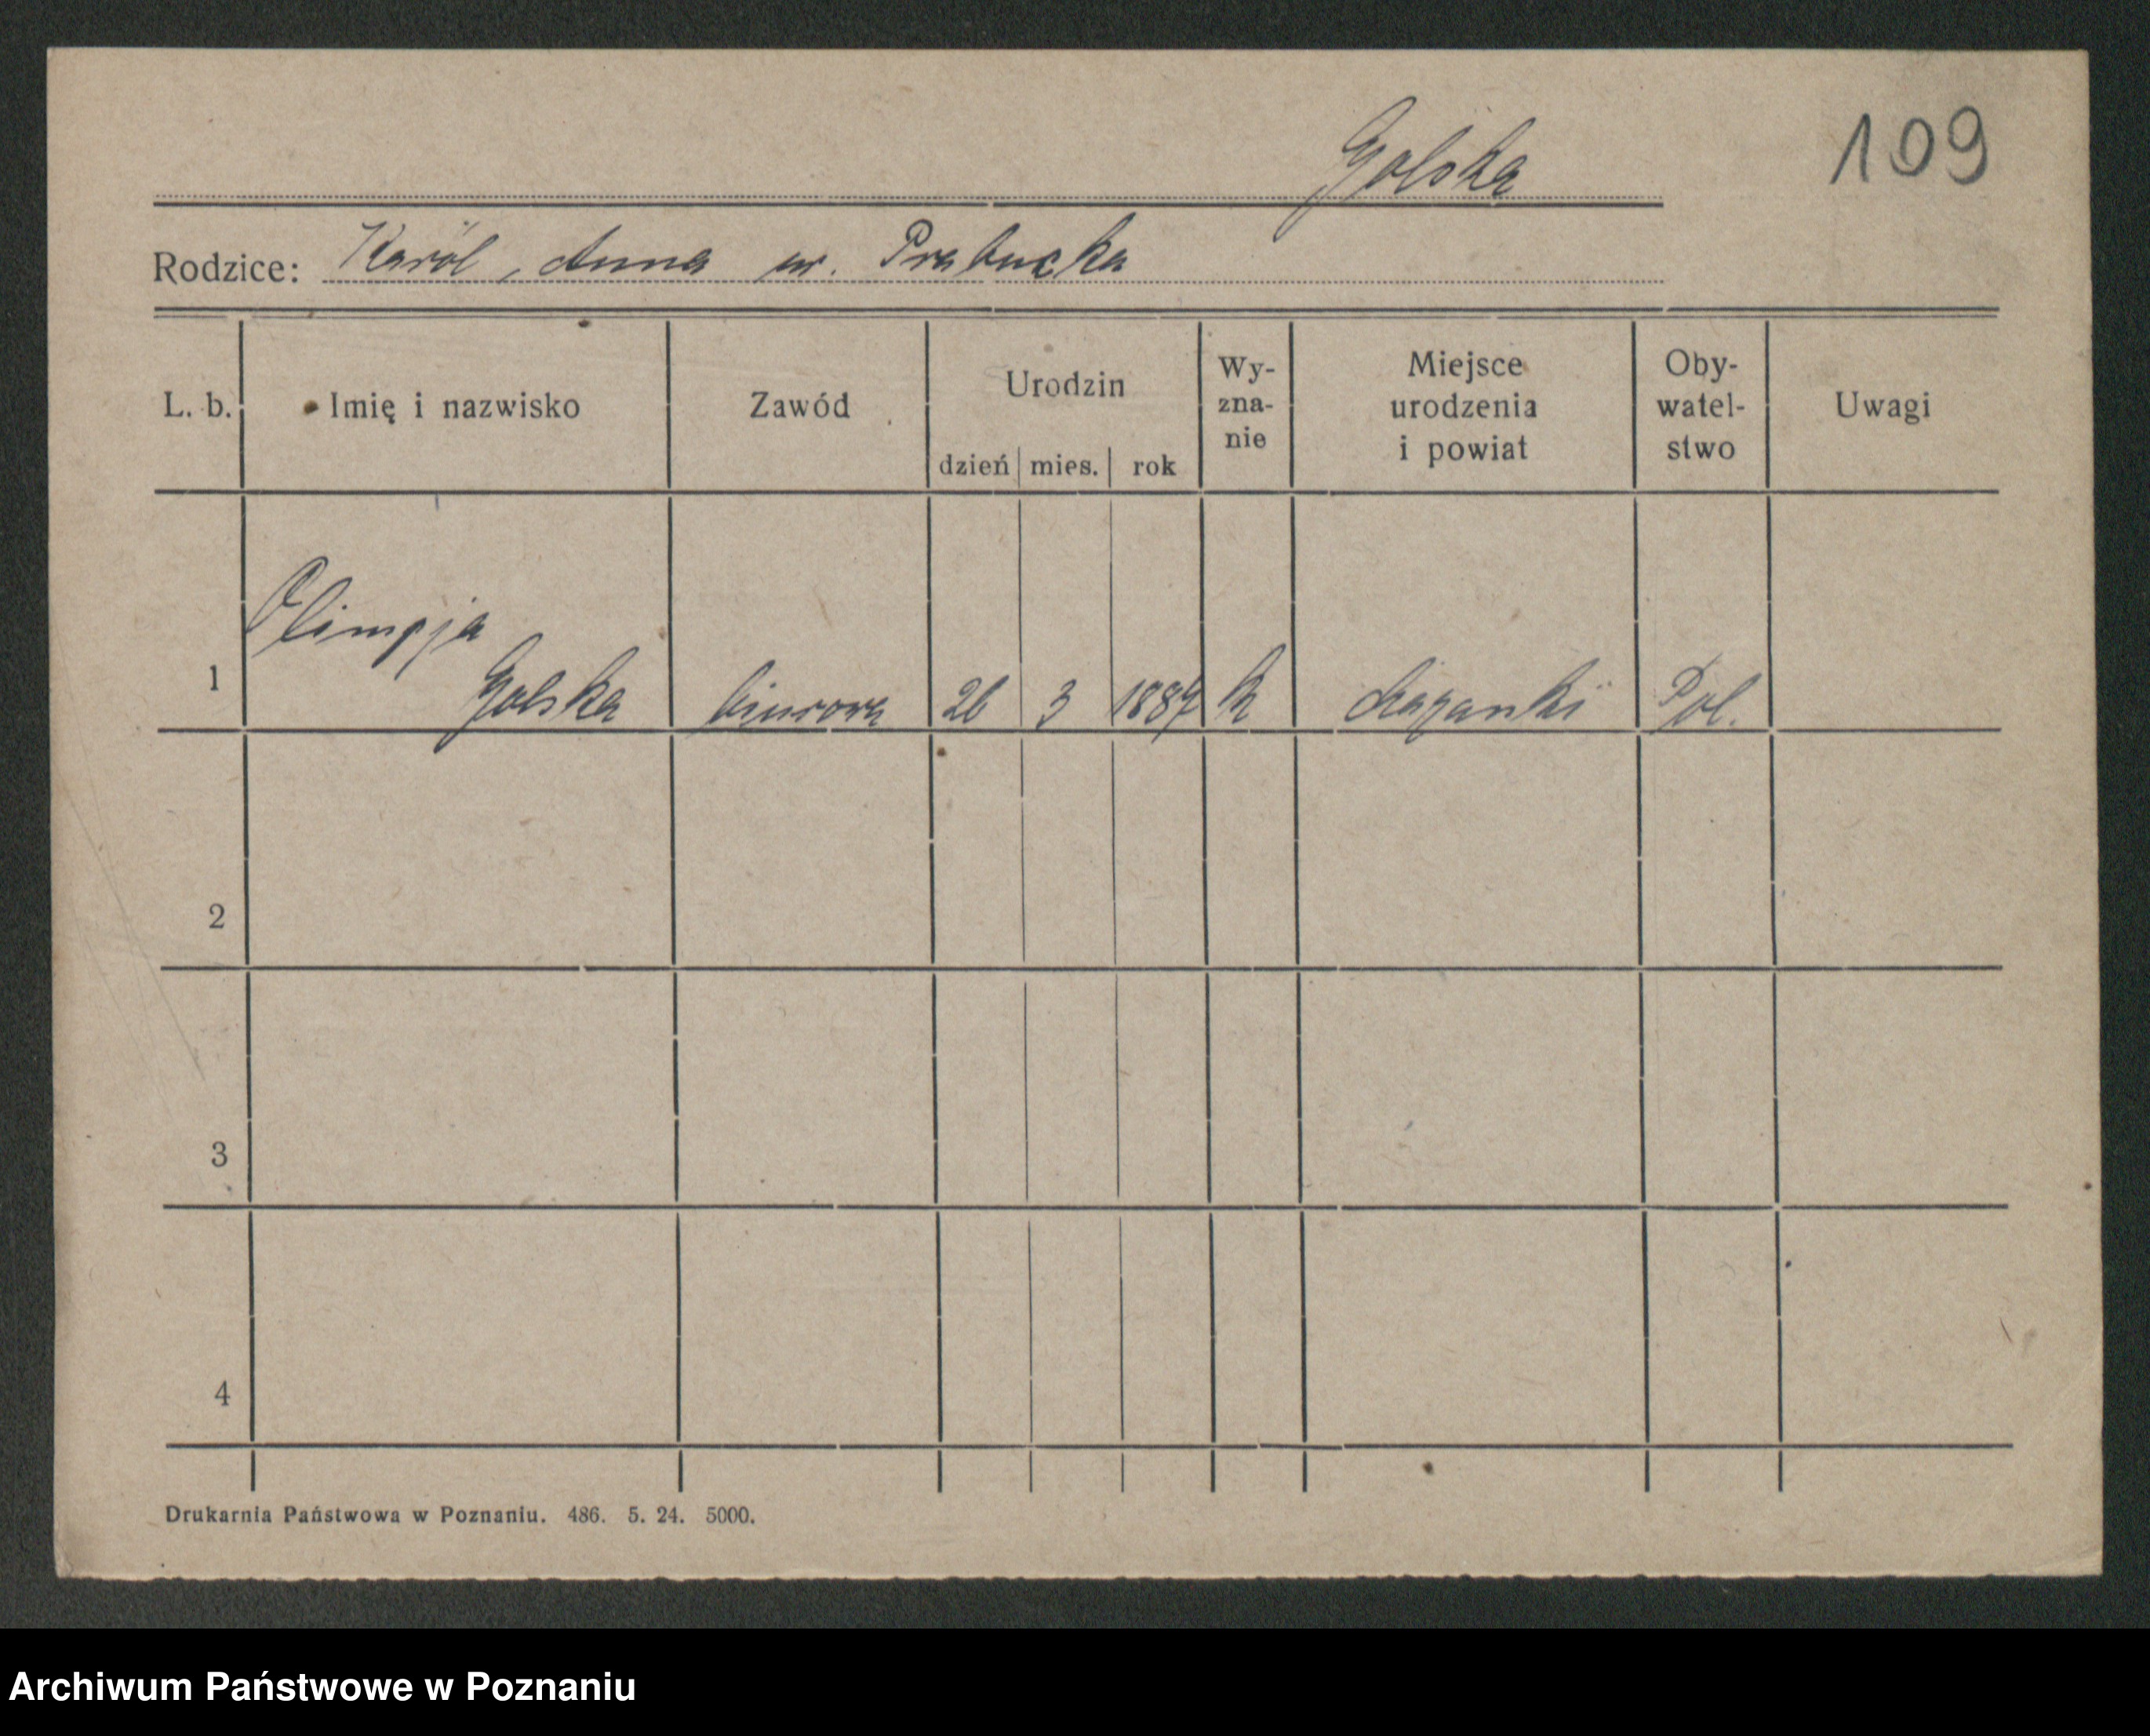 Golska
109
Rodzice: Karól, Anna ur. Prabucka
L. b. Imię i nazwisko Zawód Urodzin dzień mies. rok Wy-zna-nie Miejsce urodzenia i powiat Oby-watel-stwo Uwagi
Olimpja
1 Golska biurowa 26 3 1887 k Łazanki Pol.
2
3
4
Drukarnia Państwowa w Poznaniu. 486. 5. 24. 5000.
Archiwum Państwowe w Poznaniu